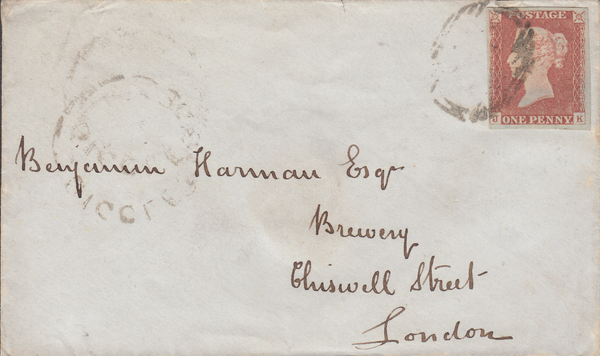 POSTAGE
ONE PENNY
K
Benjamin Harman Esqr
Brewery
Chiswell Street
London